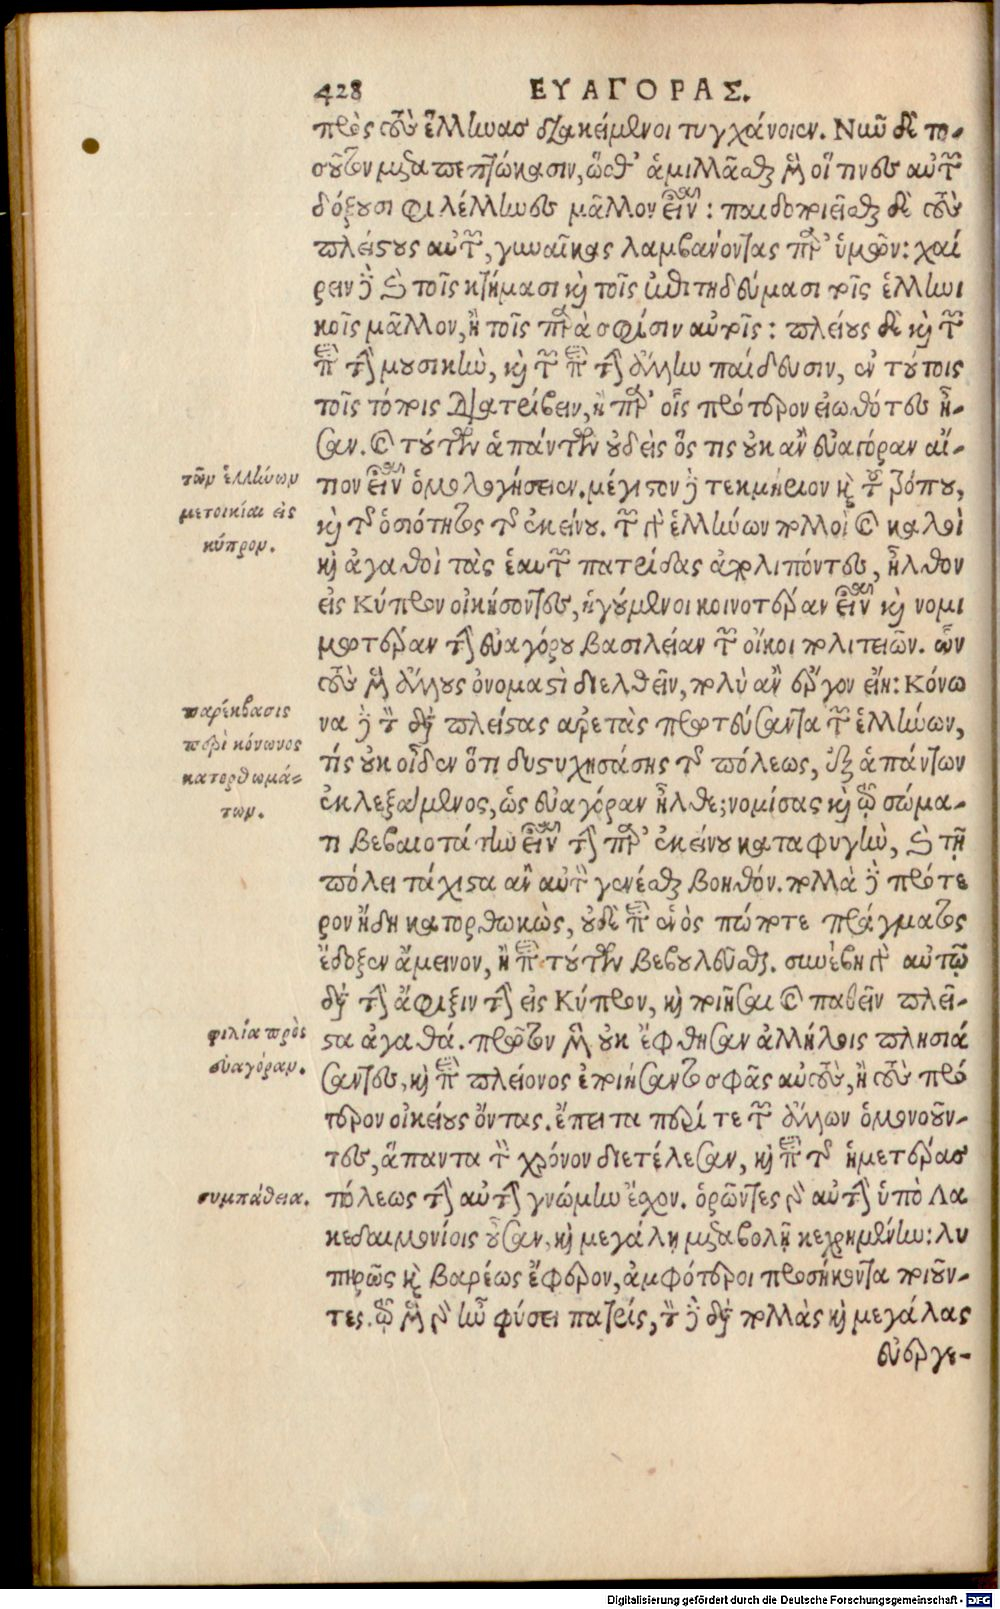 428 ΕΥΑΓΟΡΑΣ.
πρὸς τοὺς ἕλληνας διακείμενοι τυγχάνοιεν. Νυῦ δὲ το-
σοῦτον μεταπεπτώκασιν, ὥσθ' ἁμιλλᾶσθαι μὲν οἵ τινες αὐτῶν
δόξουσι φιλέλληνες μᾶλλον εἶναι: παιδοποιεῖσθαι δὲ τοὺς
πλείστους αὐτῶν, γυναῖκας λαμβάνοντας παρ' ὑμῶν: χαί
ρειν δὲ καὶ τοῖς κτήμασι καὶ τοῖς ἐπιτηδεύμασι τοῖς ἑλλίωι
κοῖς μᾶλλον, ἢ τοῖς παρὰ σφίσιν αὐτοῖς: πλείους δὲ καὶ τῶν
περὶ τὴν μουσικὴν, καὶ τῶν περὶ τὴν ἄλλην παίδευσιν, ἐν τούτοις
τοῖς τόποις διατρίβειν, ἢ παρ' οἷς πρότερον εἰωθότες ἦ-
σαν. καὶ τούτων ἁπάντων οὐδεὶς ὅς τις οὐκ ἂν εὐαγόραν αἴ-
τῶν ἑλλήνων
τιον εἶναι ὁμολογήσειεν. μέγιστον δὲ τεκμήριον καὶ τοῦ τρόπου,
μετοικίαι εἰς
καὶ τῆς ὁσιότητος τῆς ἐκείνου. τῶν γὰρ ἑλλήνων πολλοὶ καὶ καλοὶ
κύπρον.
καὶ ἀγαθοὶ τὰς ἑαυτῶν πατρίδας ἀπολιπόντες, ἦλθον
εἰς Κύπρον οἰκήσοντες, ἡγούμενοι κοινοτέραν εἶναι καὶ νομι
μωτέραν τὴν εὐαγόρου βασιλείαν τῶν οἴκοι πολιτειῶν. ὧν
τοὺς μὲν ἄλλους ὀνομαστὶ διελθεῖν, πολὺ ἂν ἔργον εἴη: Κόνω
παρέκβασις
να δὲ τὸν διὰ πλείστας ἀρετὰς πρωτεύσαντα τῶν ἑλλήνων,
περὶ κόνωνος
τίς οὐκ οἶδεν ὅτι δυστυχησάσης τῆς πόλεως, ἐξ ἁπάντων
κατορθωμά-
ἐκλεξάμενος, ὡς εὐαγόραν ἦλθε; νομίσας καὶ τῷ σώμα-
των.
τι βεβαιοτάτην εἶναι τὴν παρ' ἐκείνου καταφυγὴν, καὶ τῇ
πόλει τάχιστα ἂν αὐτὸν γενέσθαι βοηθόν. πολλὰ δὲ πρότε
ρον ἤδη κατορθωκὼς, οὐδὲ περὶ ἑνὸς πώποτε πράγματος
ἔδοξεν ἄμεινον, ἢ περὶ τούτων βεβουλεῦσθαι. συνέβη γὰρ αὐτῷ
διὰ τὴν ἄφιξιν τὴν εἰς Κύπρον, καὶ ποιῆσαι καὶ παθεῖν πλεῖ-
φιλία πρὸς
στα ἀγαθά. πρῶτον μὲν οὐκ ἔφθησαν ἀλλήλοις πλησιά
εὐαγόραν.
σαντες, καὶ περὶ πλείονος ἐποιήσαντο σφᾶς αὐτοὺς, ἢ τοὺς πρό
τερον οἰκείους ὄντας. ἔπειτα περί τε τῶν ἄλλων ὁμονοοῦν-
τες, ἅπαντα τὸν χρόνον διετέλεσαν, καὶ περὶ τῆς ἡμετέρας
συμπάθεια.
πόλεως τὴν αὐτὴν γνώμην ἔχον. ὁρῶντες γὰρ αὐτὴν ὑπὸ Λα
κεδαιμονίοις οὖσαν, καὶ μεγάλῃ μεταβολῇ κεχρημένην: λυ
πηρῶς καὶ βαρέως ἔφερον, ἀμφότεροι προσήκοντα ποιοῦν-
τες. τῷ μὲν γὰρ ἦν φύσει πατρίς, τὸν δὲ διὰ πολλὰς καὶ μεγάλας
εὐεργε-
Digitalisierung gefördert durch die Deutsche Forschungsgemeinschaft - DFG